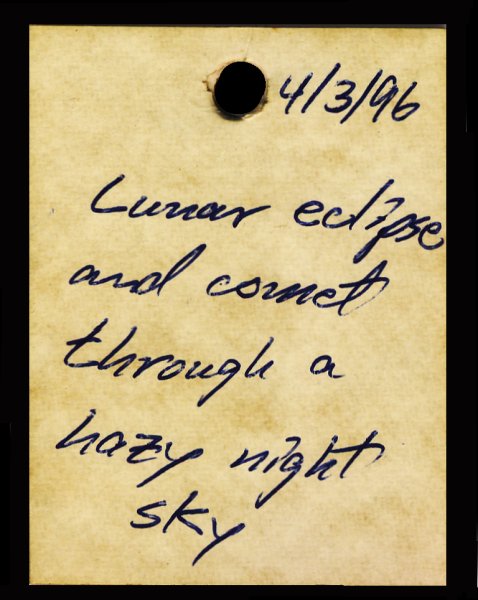 4/3/96
Lunar eclipse
and comet
through a
hazy night
sky